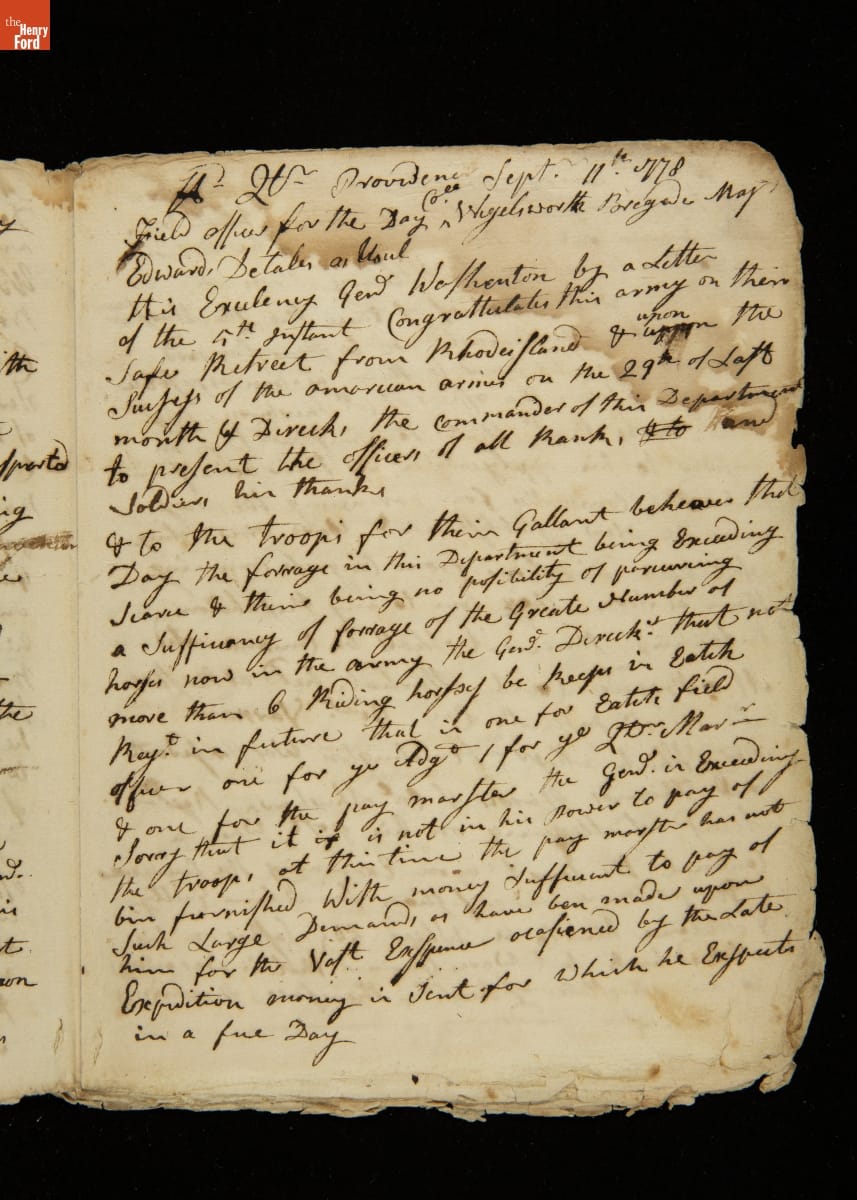 the
Henry
Ford
Hd Qtr Providence Sept. 11th 1778
Field officer for the Day Coll Wigelsworth Bregade Majr
Edwards Detales as Usul
His Exculency Genl Washenton by a Letter
of the 5th Instant Congrattulates this army on their
Safe Retreet from Rhodeisland & upon the
Sucsess of the amarican armes on the 29th of Last
month & Direcks the commander of this Department
to present the officers of all Ranks and
Soldiers his thanks
& to the troops for their Gallant behever that
Day the forrage in this Department being Exceeding
Scarce & their being no posibility of parcuring
a Suffiuancy of forrage of the Greate Number of
horses now in the army the Genl. Direckts that not
more than 6 Riding horsses be keeps in Eatch
Regt. in future that is one for Eatch field
officer one for ye Adgt 1 for ye Qtr Marr
& one for the pay marster the Genl. is Exceeding
Sorry that it is is not in his Power to pay of
the troops at this time the pay marster has not
bin furnished With money Suffiuent to pay of
Such Large Demands as have ben made upon
him for the Vast Exspence ocasiened by the Late
Expedition money is Sent for Which he Exspects
in a fue Day
ith
sported
ing
the